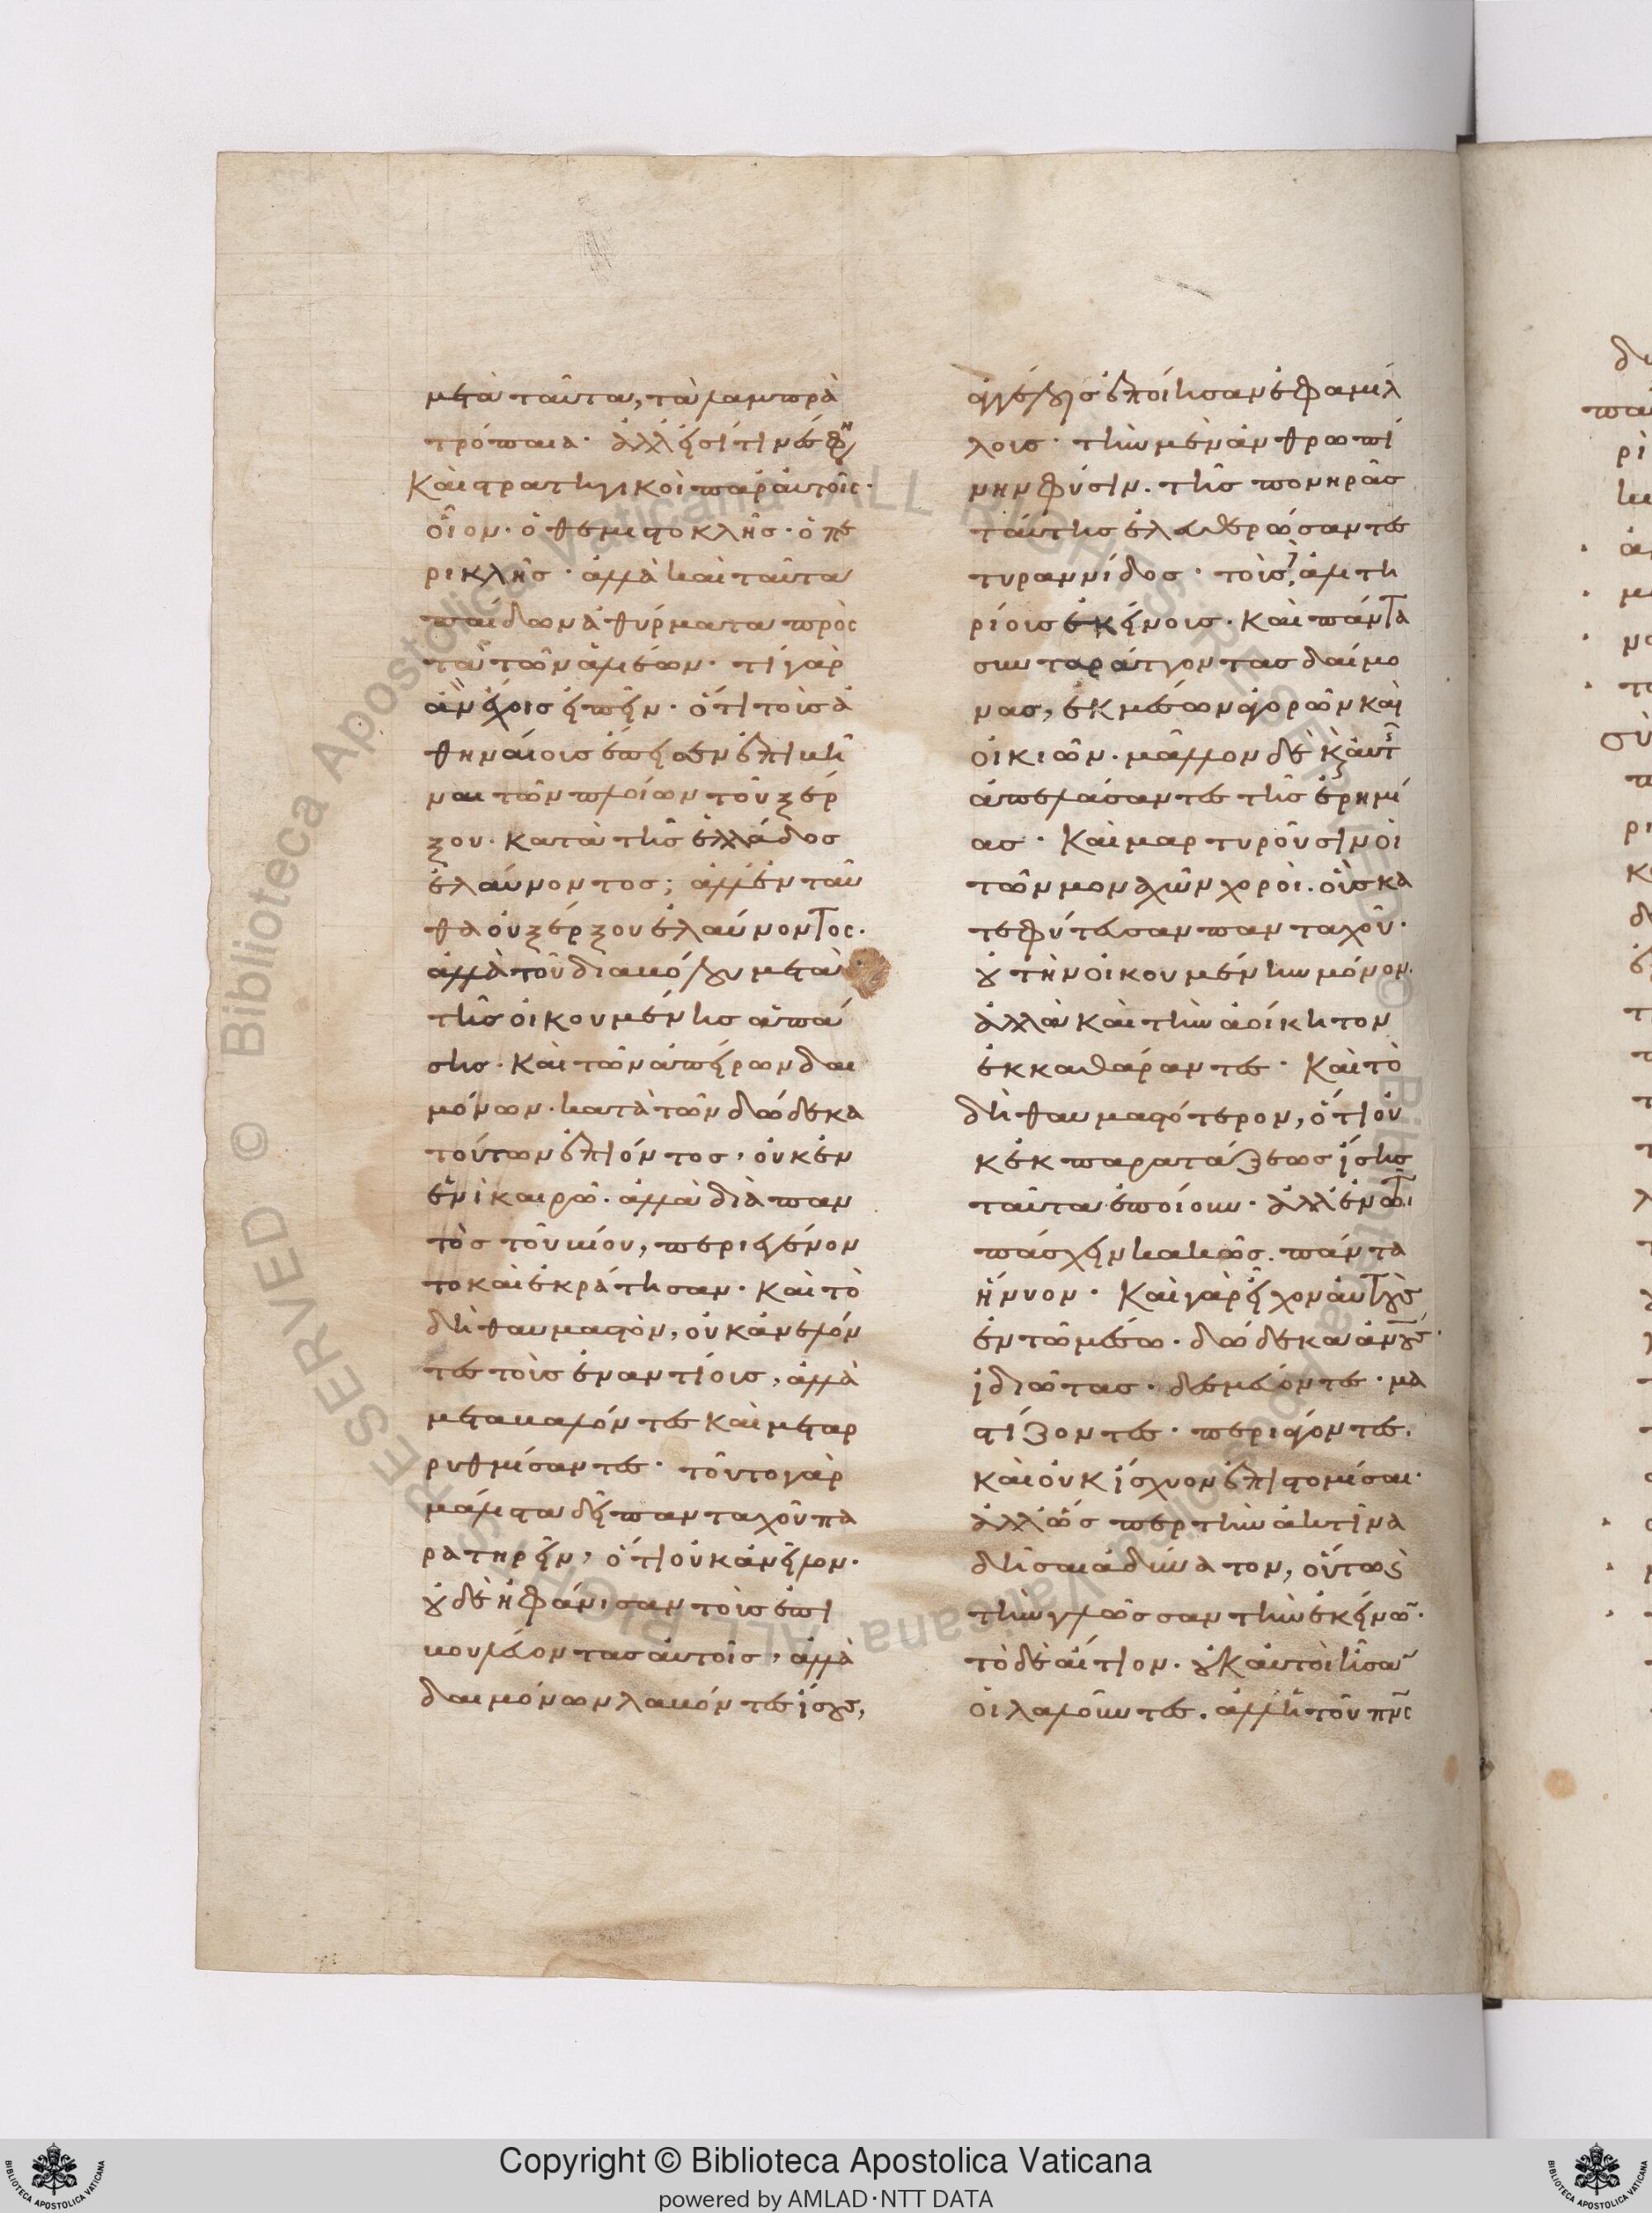 μετὰ ταῦτα, τὰ λαμπρὰ
τρόπαια· ἀλλ' εἰσί τινές φη
Καὶ στρατηγικοὶ παρ' αὐτοῖς·
οἷον· ὁ θεμιστοκλῆς· ὁ πε
ρικλῆς· ἀλλὰ καὶ ταῦτα
παίδων ἀθύρματα πρὸς
τὰ τῶν ἁλιέων· τί γὰρ
ἂν ἔχοις εἰπεῖν· ὅτι τοῖς ἀ
θηναίοις ἔπεισεν ἐπιβῆ
ναι τῶν πλοίων τοῦ ξέρ
ξου· κατὰ τῆς ἑλλάδος
ἐλαύνοντος; ἀλλ' ἐνταῦ
θα οὐ ξέρξου ἐλαύνοντος·
ἀλλὰ τοῦ διαβόλου μετὰ
τῆς οἰκουμένης ἁπά
σης· καὶ τῶν ἀπείρων δαι
μόνων· κατὰ τῶν δώδεκα
τούτων ἐπιόντος, οὐκ ἐν
ἑνὶ καιρῶ· ἀλλὰ διὰ παν
τὸς τοῦ βίου, περιεγένον
το καὶ ἐκράτησαν· καὶ τὸ
δὴ θαυμαστὸν, οὐκ ἀνελόν
τες τοῖς ἐναντίοις, ἀλλὰ
μεταβαλόντες καὶ μεταρ
ρυθμίσαντες· τοῦτο γὰρ
μάλιστα δεῖ πανταχοῦ πα
ρατηρεῖν, ὅτι οὐκ ἀνεῖλον·
οὐδὲ ἠφάνισαν τοῖς ἐπι
βουλεύοντας αὐτοῖς, ἀλλὰ
δαιμόνων λαβόντες ἴσους,
ἀγγέλοις ἐποίησαν ἐφαμίλ
λοις· τὴν μὲν ἀνθρωπί
νην φύσιν· τῆς πονηρᾶς
ταύτης ἐλευθερώσαντες
τυραννίδος· τοὺς ἀλιτη
ρίοις ἐκείνοις· καὶ πάντα
συνταράττοντας δαίμο
νας, ἐκ μέσων ἀγορῶν καὶ
οἰκιῶν· μᾶλλον δὲ κ αὐτῆς
ἀπελάσαντες τῆς ἐρημί
ας· Καὶ μαρτυροῦσιν οἱ
τῶν μοναχῶν χοροὶ· οὓς κα
τεφύτευσαν πανταχοῦ·
οὐ τὴν οἰκουμένην μόνον·
ἀλλὰ καὶ τὴν ἀοίκητον
ἐκκαθάραντες· Καὶ τὸ
δὴ θαυμαστότερον, ὅτι οὐ
κ ἐκ παρατάξεως ἴσης
ταῦτα ἐποίουν· ἀλλ' ἐν τῶ
πάσχειν κακῶς· πάντα
ἤνυον· Καὶ γὰρ εἶχον αὐτοὺς
ἐν τῶ μέσω· δώδεκα ἀνους·
ἰδιώτας· δεσμεύοντες· μα
στίζοντες· περιάγοντες·
καὶ οὐκ ἴσχυον ἐπιστομίσαι·
ἀλλ' ὥσπερ τὴν ἀκτῖνα
δῆσαι ἀδύνατον, οὕτως
τὴν γλῶσσαν τὴν ἐκείνων·
τὸ δὲ αἴτιον· οὐκ αὐτοὶ ἦσαν
οἱ λαλοῦντες· ἀλλ' ἡ τοῦ πνς